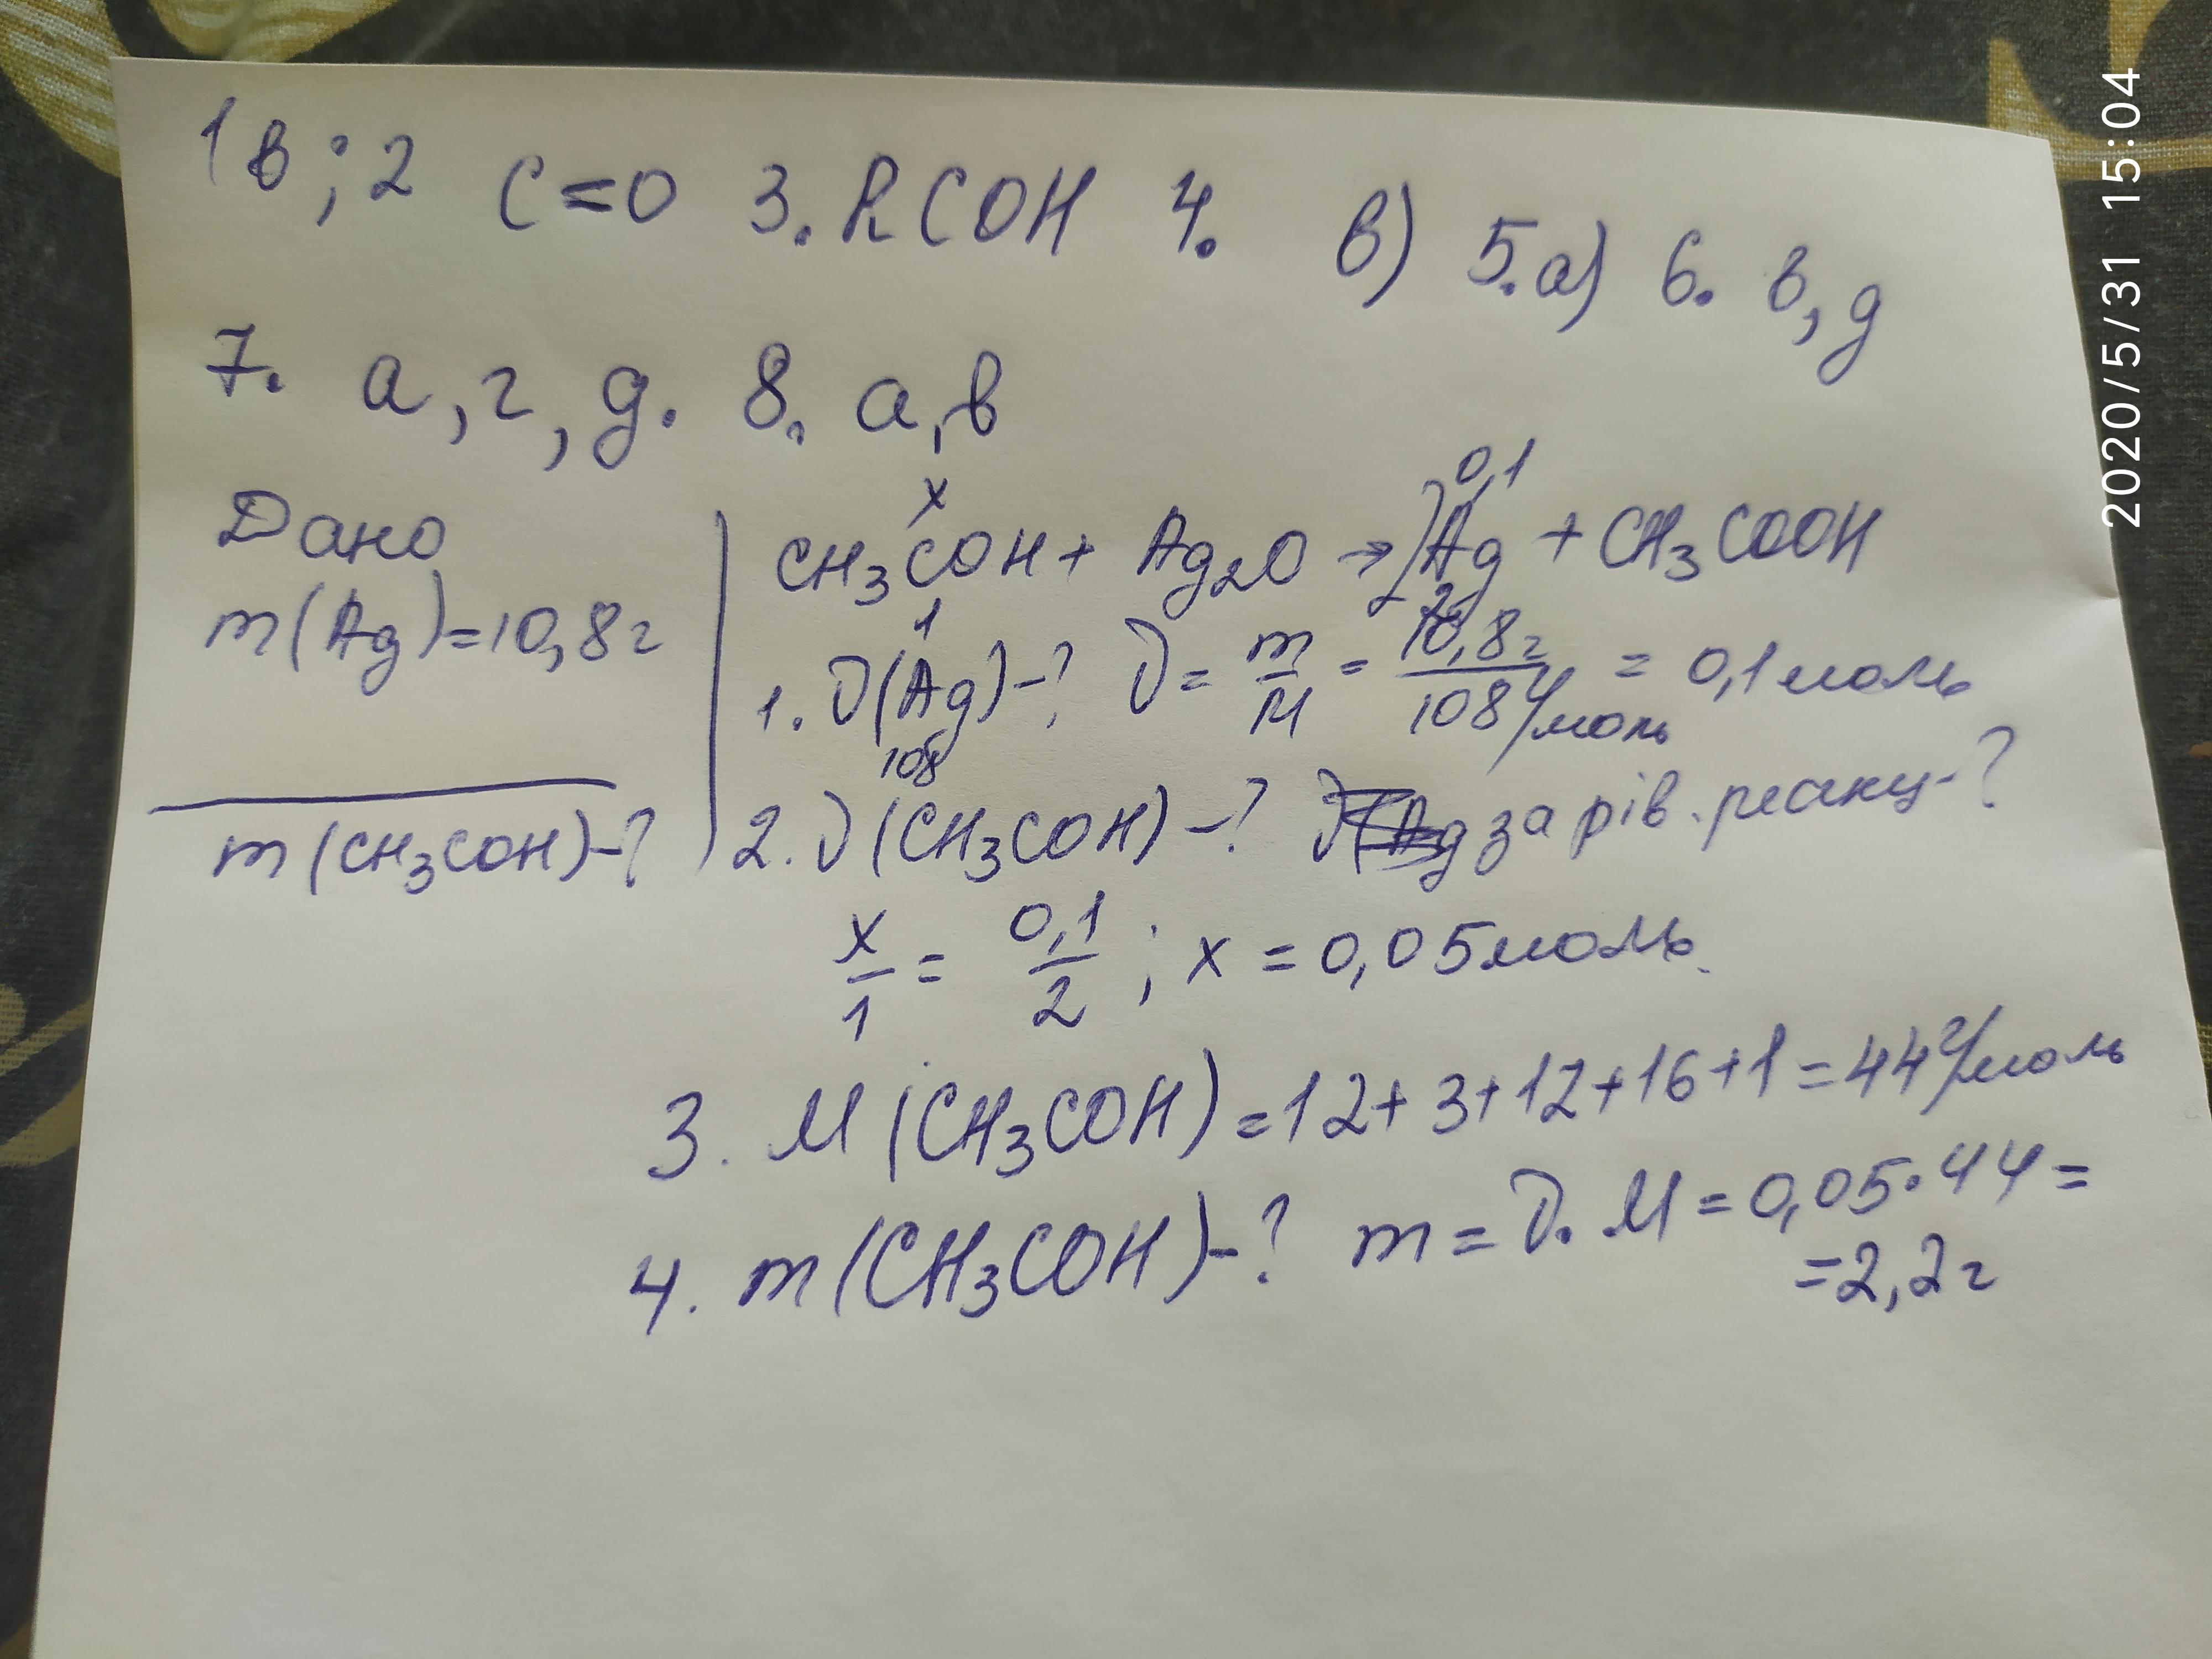 1 в ; 2 C=O 3. RCOH 4. в) 5. а) 6. в, д
7. а, г, д. 8. а, в
Дано
m(Ag)=10,8г
m(CH3COH)-?
x 0,1
CH3COH + Ag2O → 2Ag + CH3COOH
1 2
1. ν(Ag)-? ν = m/M = 10,8г/108г/моль = 0,1 моль
108
2. ν(CH3COH)-? за рів. реакц-?
x/1 = 0,1/2 ; x = 0,05 моль.
3. M(CH3COH) = 12+3+12+16+1 = 44г/моль
4. m(CH3COH)-? m = ν. M = 0,05·44=
=2,2г
2020/5/31 15:04